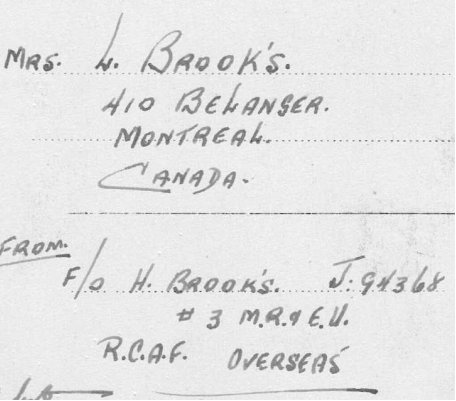 MRS. L. BROOK'S.
410 BELANGER.
MONTREAL.
CANADA.
FROM.
F/O H. BROOK'S. J. 94368
# 3 M.R. & E.U.
R.C.A.F. OVERSEAS